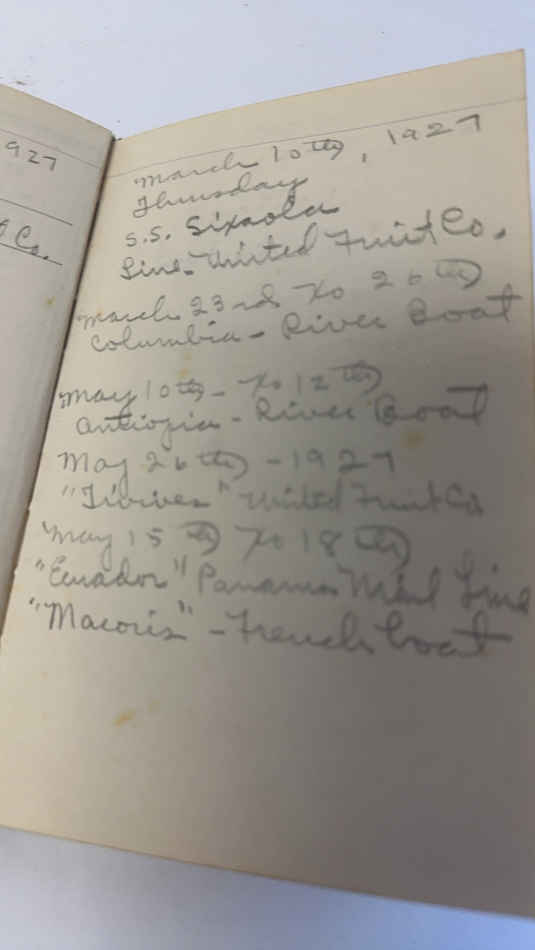 927
Co.
March 10th, 1927
Thursday
S.S. Sixaola
Line - United Fruit Co.
March 23rd to 26th
Columbia - River Boat
May 10th - to 12th
Antioqia - River Boat
May 26th - 1927
"Tivives" United Fruit Co
May 15th to 18th
"Ecuador" Panama Mail Line
"Macoris" - French boat